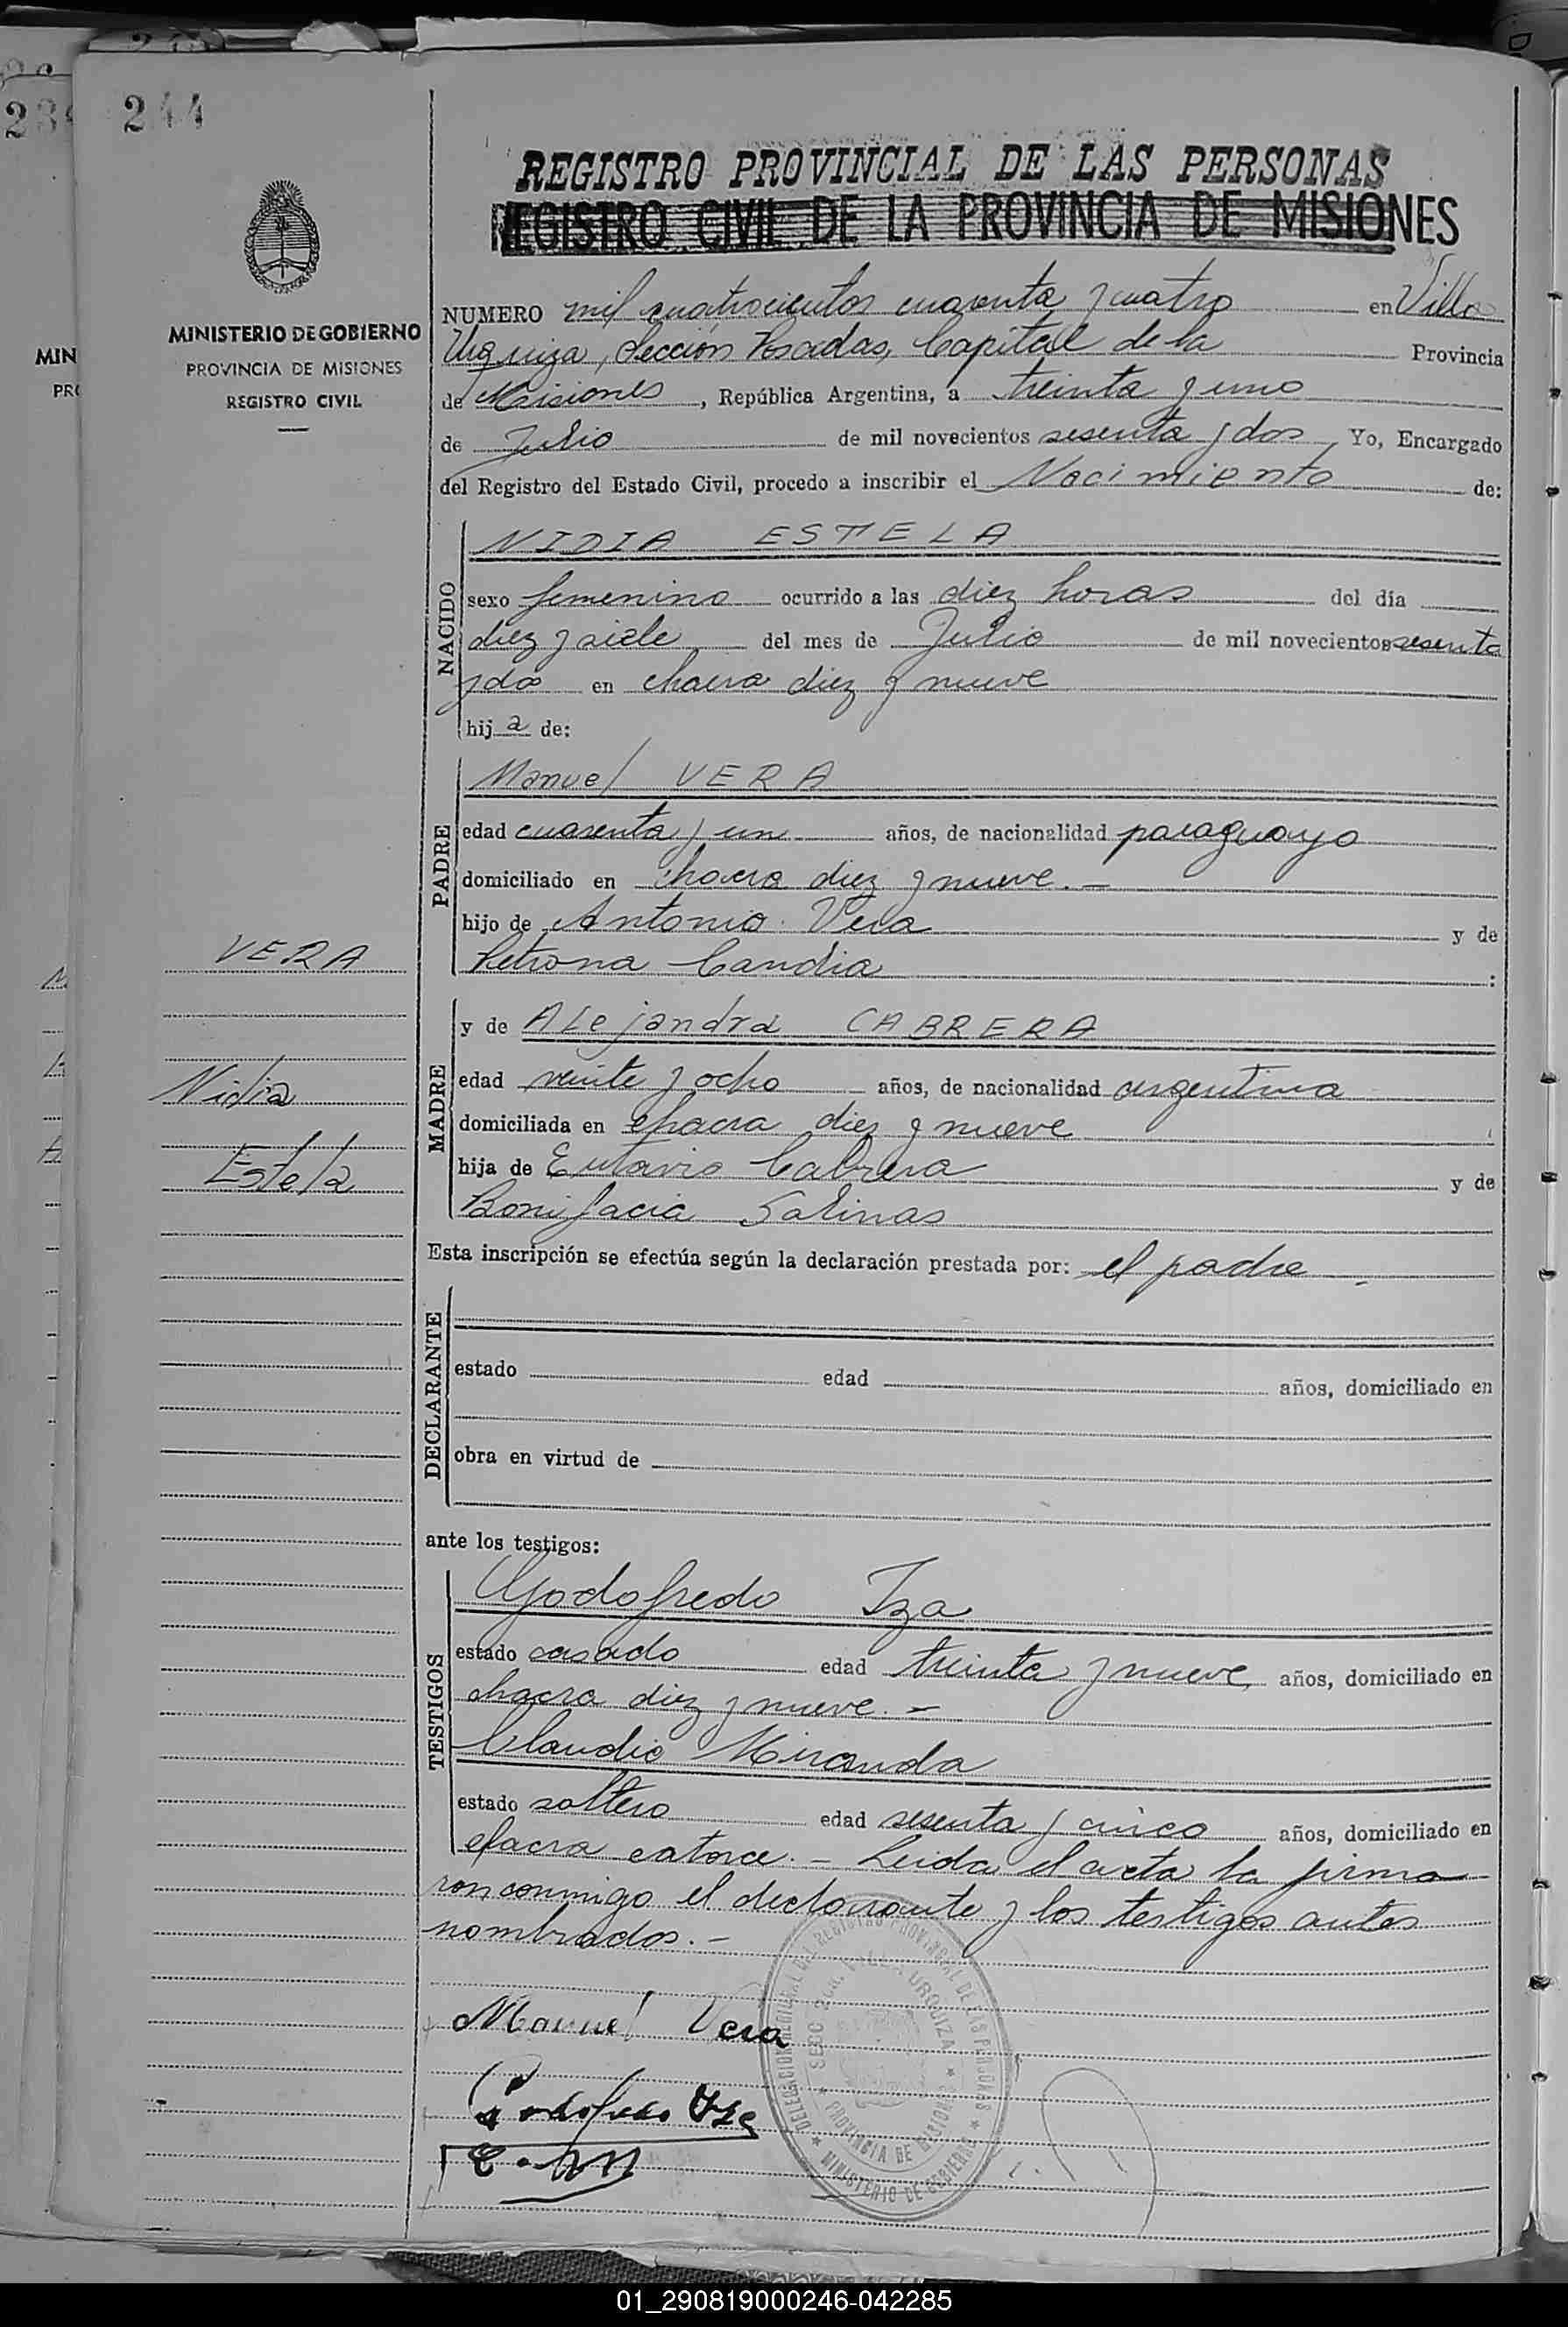 244
REGISTRO PROVINCIAL DE LAS PERSONAS
REGISTRO CIVIL DE LA PROVINCIA DE MISIONES
MINISTERIO DE GOBIERNO
PROVINCIA DE MISIONES
REGISTRO CIVIL
NUMERO mil cuatrocientos cuarenta y cuatro en Villa
Urquiza, Sección Posadas, Capital de la Provincia
de Misiones, República Argentina, a treinta y uno
de Julio de mil novecientos sesenta y dos Yo, Encargado
del Registro del Estado Civil, procedo a inscribir el Nacimiento de:
NACIDO
NIDIA ESTELA
sexo femenino ocurrido a las diez horas del día
diez y siete del mes de Julio de mil novecientos sesenta
y dos en chacra diez y nueve
hija de:
PADRE
Manuel VERA
edad cuarenta y un años, de nacionalidad paraguayo
domiciliado en chacra diez y nueve.-
hijo de Antonio Vera y de
Petrona Candia :
VERA
Nidia
Estela
MADRE
y de Alejandra CABRERA
edad veinte y ocho años, de nacionalidad argentina
domiciliada en chacra diez y nueve
hija de Cabrera y de
Bonifacia Salinas
Esta inscripción se efectúa según la declaración prestada por: el padre
DECLARANTE
estado edad años, domiciliado en
obra en virtud de
ante los testigos:
TESTIGOS
Godofredo Iza
estado casado edad treinta y nueve años, domiciliado en
chacra diez y nueve.-
Claudio Miranda
estado soltero edad sesenta y cinco años, domiciliado en
chacra catorce.- Leida el acta la firma
ron conmigo el declarante y los testigos antes
nombrados.-
Manuel Vera
Godofredo Iza
DELEGACION DEL REGISTRO PROVINCIAL DE LAS PERSONAS
SECC. VILLA URQUIZA
PROVINCIA DE MISIONES
MINISTERIO DE GOBIERNO
01_290819000246-042285